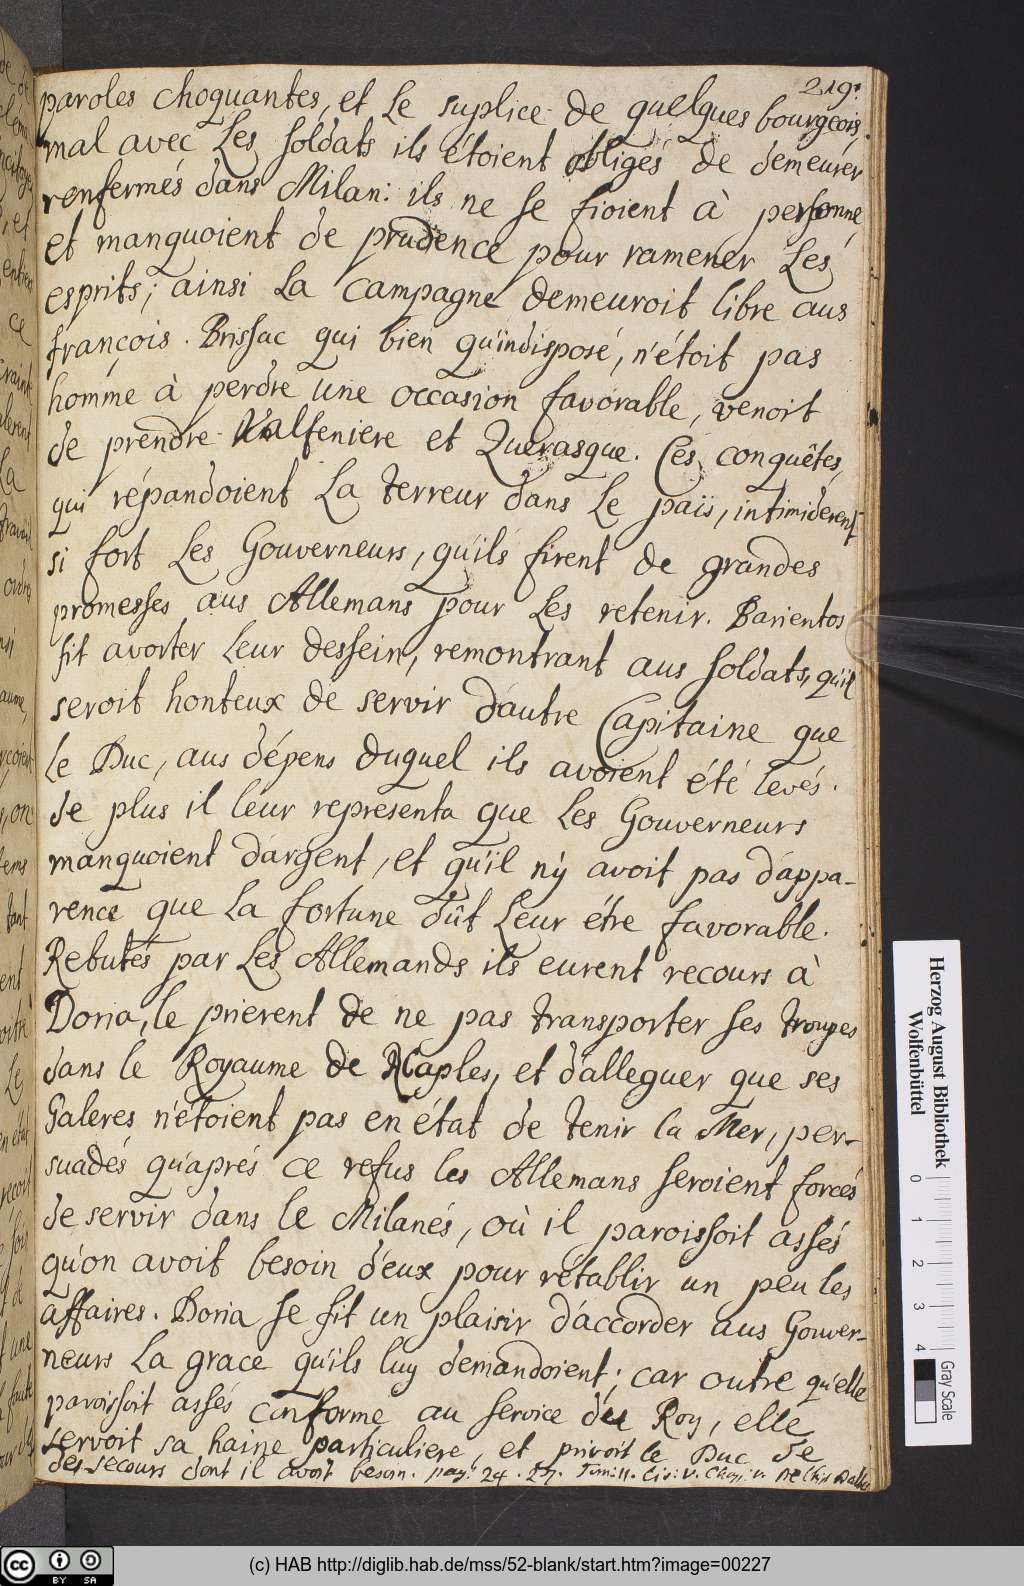 219.
paroles choquantes, et Le suplice de quelques bourgeois,
mal avec Les soldats ils étoient obligés de demeurér
renfermés dans Milan: ils ne se fioient à personne
et manquoient de prudence pour ramener Les
esprits; ainsi La campagne demeuroit libre aus
françois. Brissac qui bien qu'indisposé, n'étoit pas
homme à perdre une occasion favorable, venoit
de prendre Valfeniere et Querasque. Ces conquêtes,
qui répandoient La terreur dans Le païs, intimiderent
si fort Les Gouverneurs, qu'ils firent de grandes
promesses aus Allemans pour Les retenir. Barientos
fit avorter Leur dessein, remontrant aus soldats, qu'il
seroit honteux de servir d'autre Capitaine que
Le Duc, aus dépens duquel ils avoient été levés.
de plus il leur representa que Les Gouverneurs
manquoient d'argent, et qu'il n'y avoit pas d'appa-
rence que La fortune dût Leur étre favorable.
Rebutés par Les Allemands ils eurent recours à
Doria, le prierent de ne pas transporter ses troupes
dans le Royaume de Naples, et d'alleguer que ses
Galeres n'étoient pas en état de tenir la Mer, per-
suadés qu'aprés ce refus les Allemans seroient forcés
de servir dans le Milanés, où il paroissoit assés
qu'on avoit besoin d'eux pour rétablir un peu les
affaires. Doria se fit un plaisir d'accorder aus Gouver-
neurs La grace qu'ils luy demandoient; car outre qu'elle
paroissoit assés conforme au service du Roy, elle
servoit sa haine particuliere, et privoit le Duc de
des secours dont il avoit besoin. pag: 24. 27. Tom: II. Liv: V. Chap: V.
(c) HAB http://diglib.hab.de/mss/52-blank/start.htm?image=00227
Herzog August Bibliothek
Wolfenbüttel
0 1 2 3 4
Gray Scale
cc BY SA